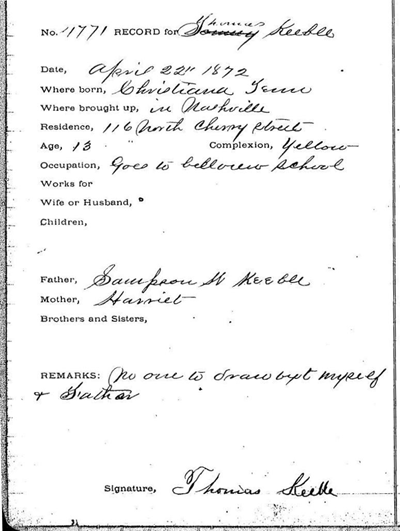 Thomas
No. 4771 RECORD for Tommy Keeble
Date, April 22" 1872
Where born, Christiana Tenn
Where brought up, in Nashville
Residence, 116 North Cherry Street
Age, 13 Complexion, Yellow
Occupation, Goes to bellview school
Works for
Wife or Husband,
Children,
Father, Sampson W Keeble
Mother, Harriet
Brothers and Sisters,
REMARKS: No one to draw but myself
& Father
Signature, Thomas Keeble